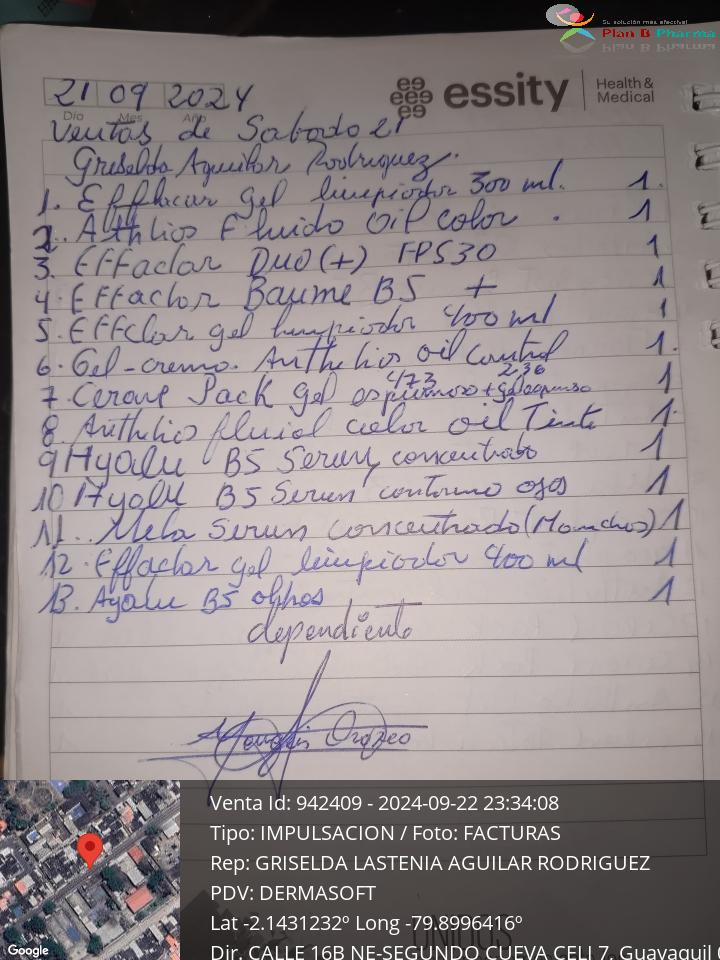 Su solución más efectiva!
Plan B Pharma
21 09 2024
Día Mes Año
essity
Health &
Medical
Ventas de Sabado 21
Griselda Aguilar Rodriguez.
1. Efflacar gel limpiador 300 ml. 1.
2.. Athlios Fluido oil color . 1
3. Effaclar Duo(+) FPS30 1
4. Effaclor Baume B5 + 1
5. Effclar gel limpiador 400 ml 1
6. Gel-crema. Anthelios oil control 1.
7. Cerave Pack gel espumoso 473 + gel espumoso 236 1
8. Anthelios fluid color oil Tinte 1.
9 Hyalu B5 Serum concentrado 1
10 Hyalu B5 Serum contorno ojos 1
11.. Mela Serum concentrado (Manchas) 1
12. Effaclar gel limpiador 400 ml 1
13. Ayalu B5 ohhos 1
dependiente
Orozco
Venta Id: 942409 - 2024-09-22 23:34:08
Tipo: IMPULSACION / Foto: FACTURAS
Rep: GRISELDA LASTENIA AGUILAR RODRIGUEZ
PDV: DERMASOFT
Lat -2.1431232º Long -79.8996416º
Dir. CALLE 16B NE-SEGUNDO CUEVA CELI 7, Guayaquil
Google